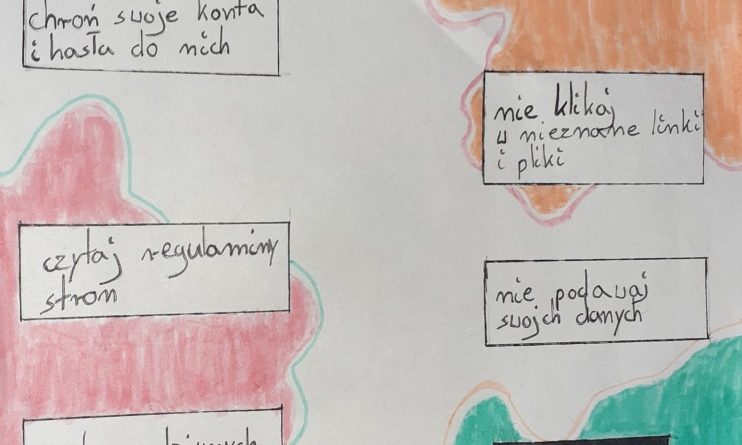 chroń swoje konta
i hasła do nich
nie klikaj
w nieznane linki
i pliki
czytaj regulaminy
stron
nie podawaj
swojch danych